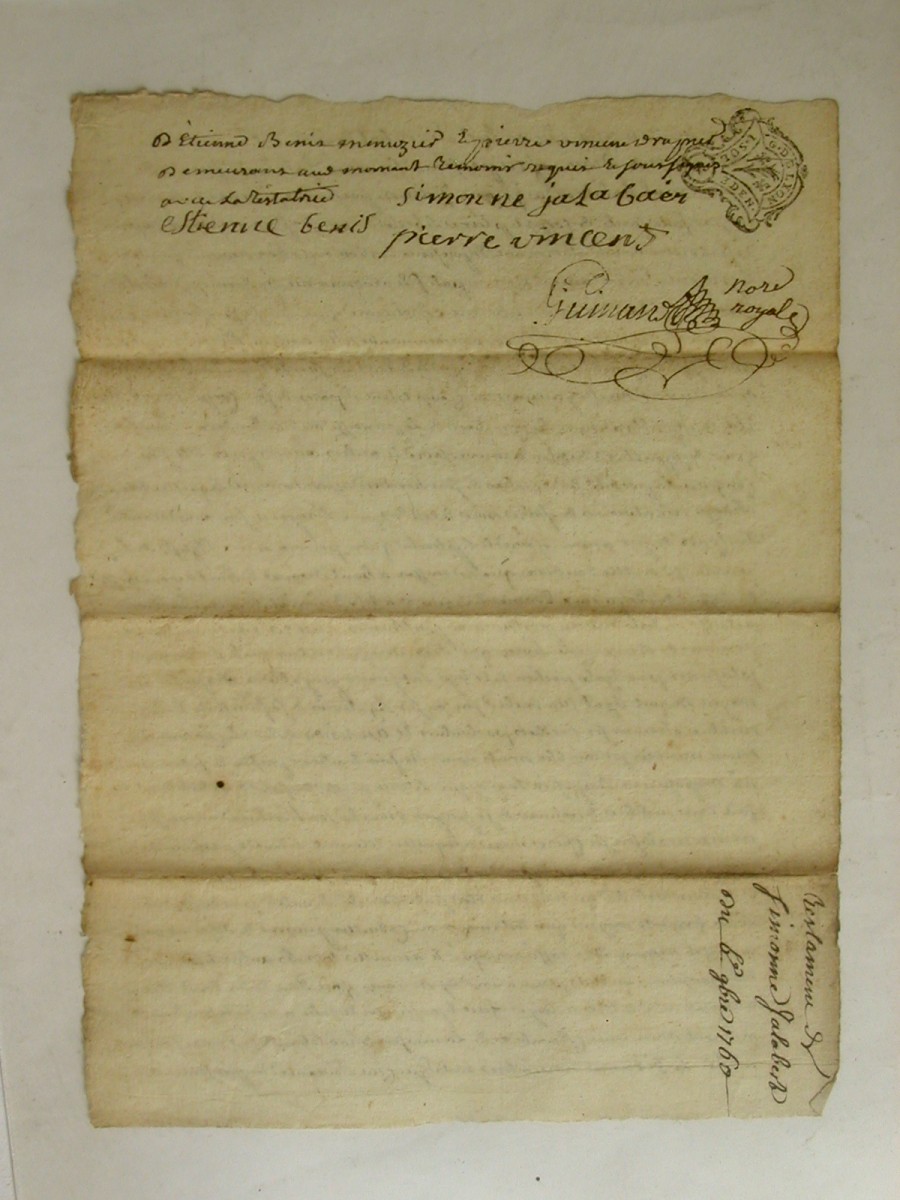 d'Etienne Benis menuzier & pierre vincent
demeurans aud monant temoins requis & soussignés
avec la testatrice simonne jalabaer
estienne benis
pierre vincent
Guiman nore
royal
G. DE LYON
SOLS
testament de
Simonne Jalabert
du 6e 9bre 1760